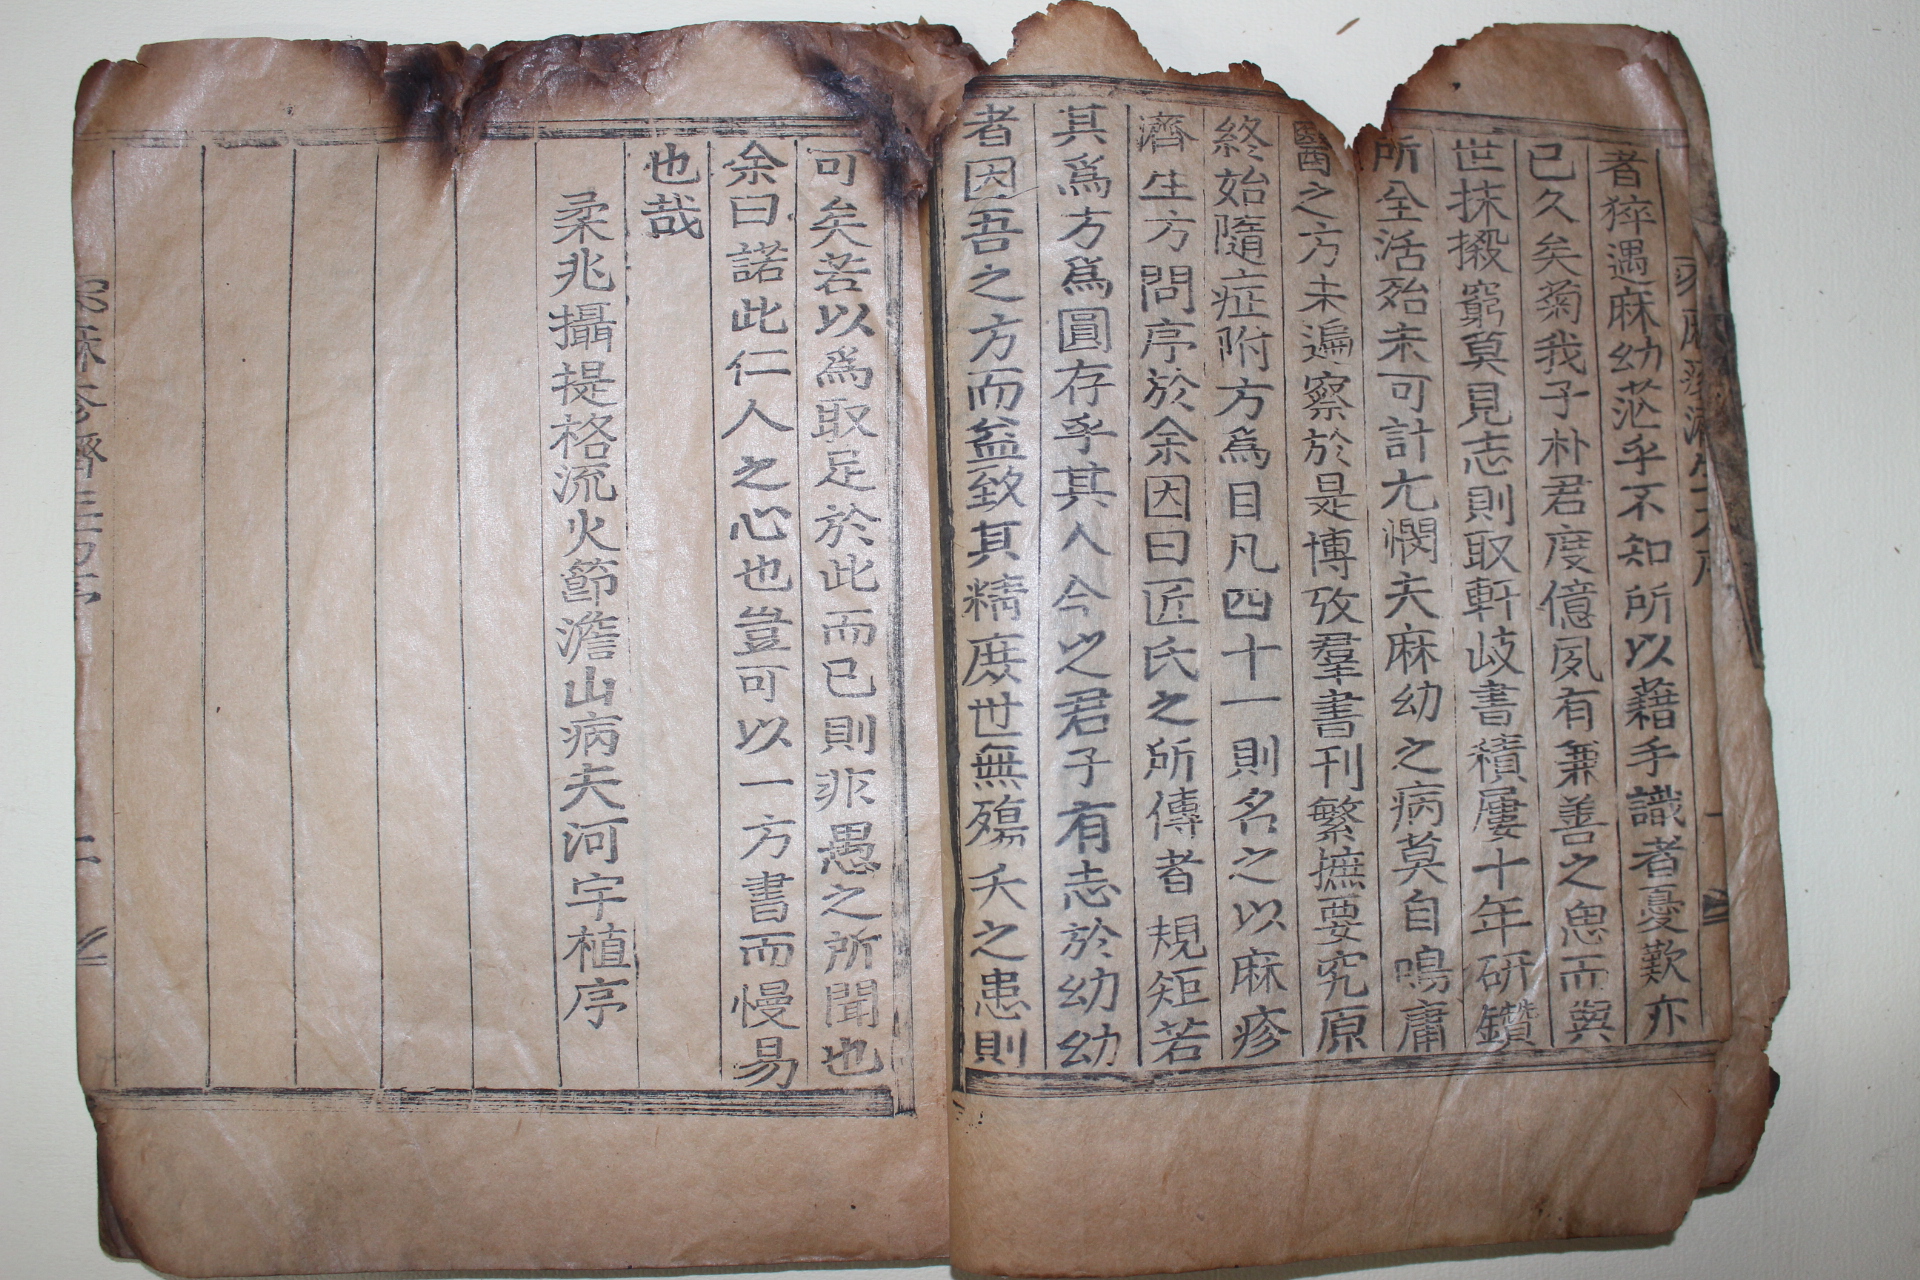 者猝遇麻幼茫乎不知所以藉手識者憂歎亦
已久矣菊我子朴君度億夙有兼善之思而與
世抹摋窮莫見志則取軒岐書積屢十年研鑽
所全活殆未可計尤憫夫麻幼之病莫自鳴庸
醫之方未遍察於是博攷羣書刊繁撫要究原
終始隨症附方爲目凡四十一則名之以麻疹
濟生方問序於余因曰匠氏之所傳者規矩若
其爲方爲圓存乎其人今之君子有志於幼幼
者因吾之方而益致其精庶世無殤夭之患則
可矣若以爲取足於此而已則非愚之所聞也
余曰諾此仁人之心也豈可以一方書而慢易
也哉
柔兆攝提格流火節澹山病夫河宇植序